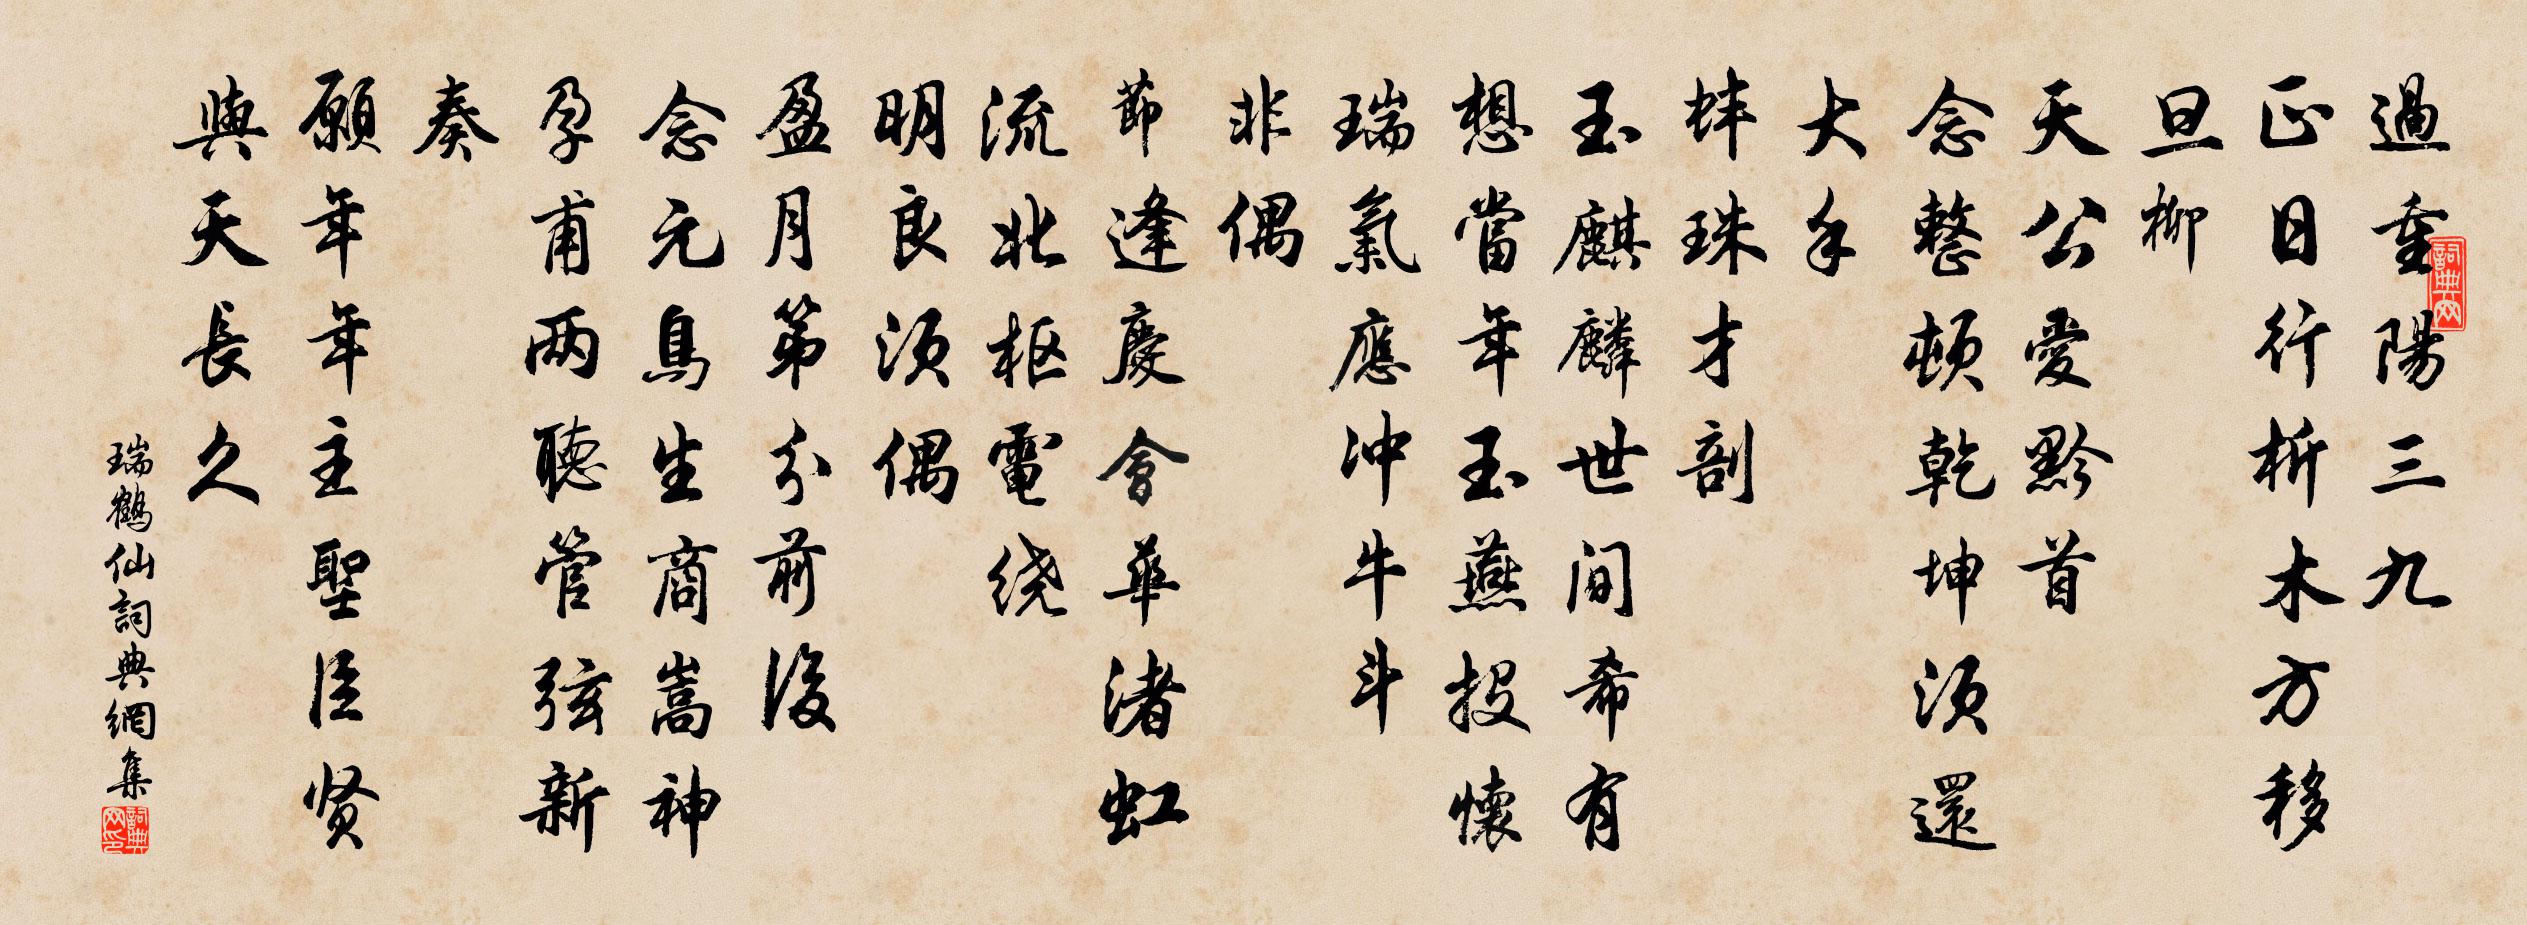 過重陽三九
正日行析木方移
旦柳
天公愛黔首
念整頓乾坤須還
大手
蚌珠才剖
玉麒麟世间希有
想當年玉燕投懷
瑞氣應冲牛斗
非偶
節逢慶會華渚虹
流北枢電绕
明良须偶
盈月第分前後
念元鳥生商嵩神
孕甫两聽管弦新
奏
願年年主聖臣贤
與天長久
瑞鶴仙詞典網集
詞典网
詞典网印